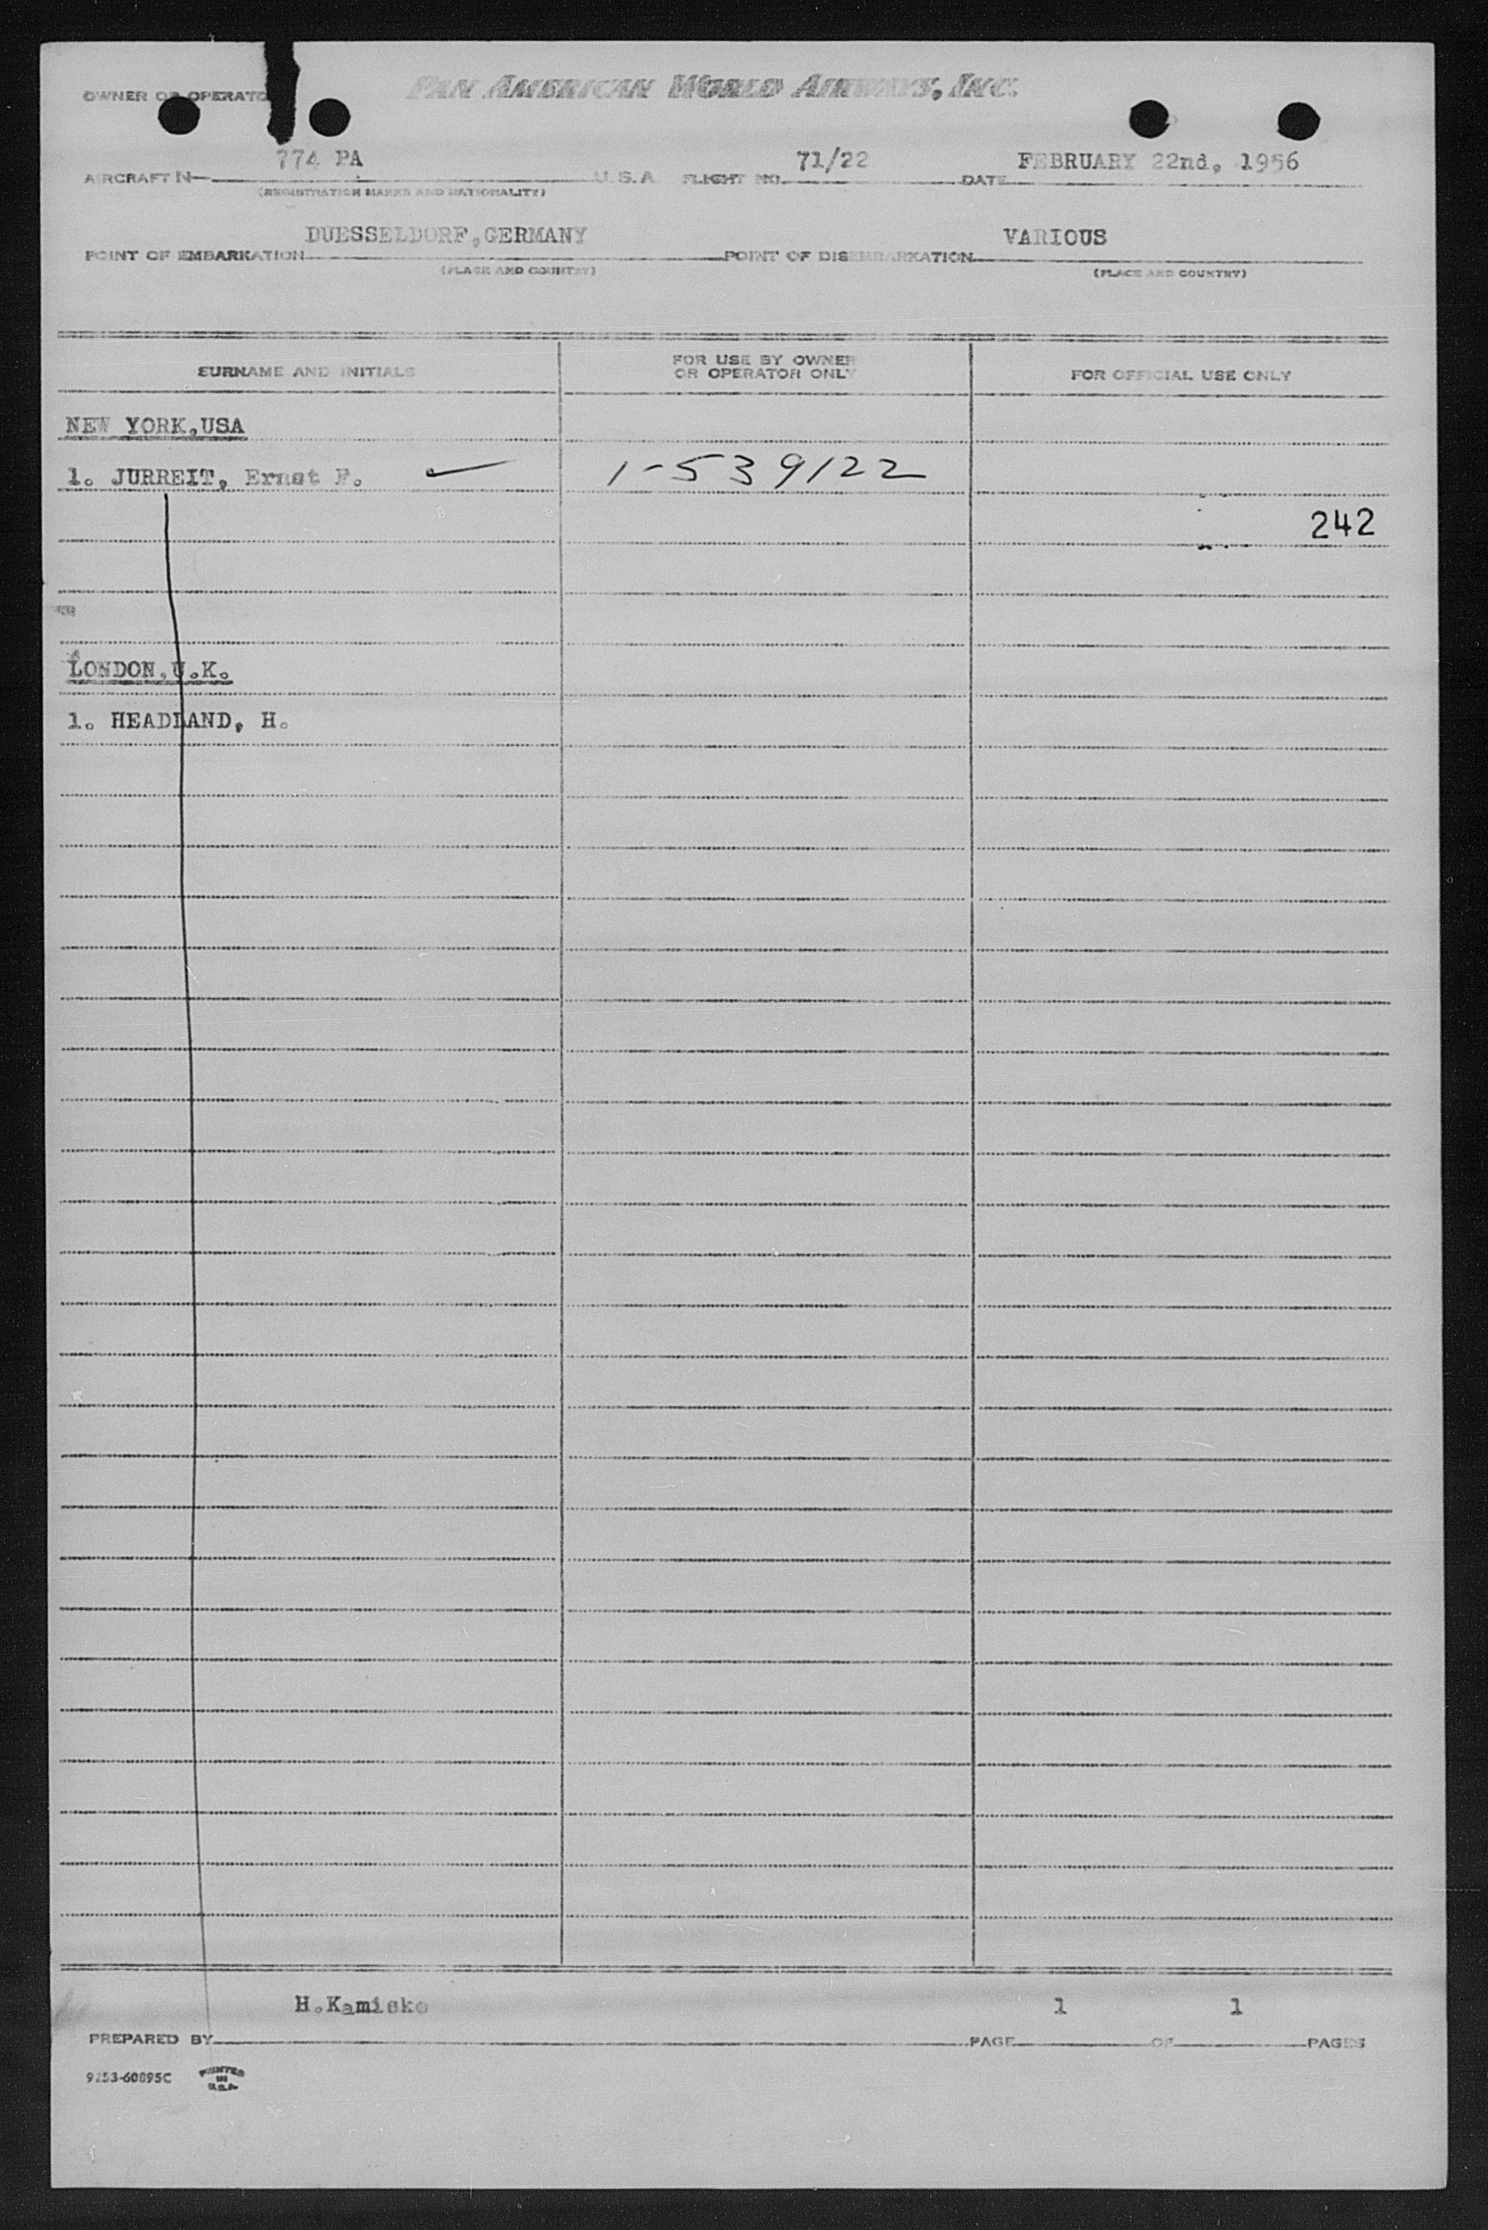 PAN AMERICAN WORLD AIRWAYS, INC.
OWNER OR OPERATO
774 PA 71/22 FEBRUARY 22nd, 1956
AIRCRAFT N U.S.A FLIGHT NO. DATE
(REGISTRATION MARKS AND NATIONALITY)
DUESSELDORF,GERMANY VARIOUS
POINT OF EMBARKATION POINT OF DISEMBARKATION
(PLACE AND COUNTRY) (PLACE AND COUNTRY)
SURNAME AND INITIALS FOR USE BY OWNER OR OPERATOR ONLY FOR OFFICIAL USE ONLY
NEW YORK,USA
1. JURREIT, Ernst F. ✓ 1-539122
242
LONDON,U.K.
1. HEADLAND, H.
H.Kamieke 1 1
PREPARED BY PAGE OF PAGES
9153-60895C PRINTED IN U.S.A.